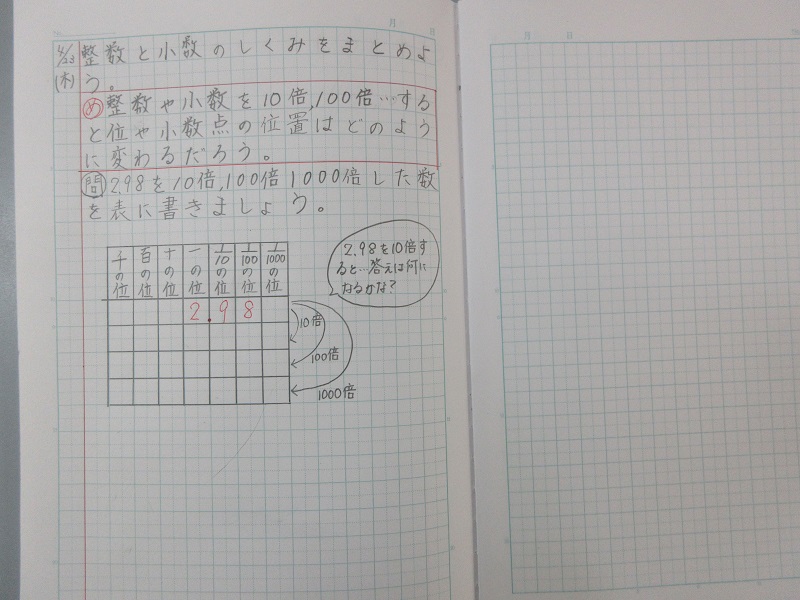 月
月 日
4/23
(木)
整数と小数のしくみをまとめよ
う。
め 整数や小数を10倍,100倍…する
と位や小数点の位置はどのよう
に変わるだろう。
問 2.98を10倍,100倍1000倍した数
を表に書きましょう。
千の位 百の位 十の位 一の位 1/10の位 1/100の位 1/1000の位
2.98
10倍
100倍
1000倍
2.98を10倍す
ると…答えは何に
なるかな?